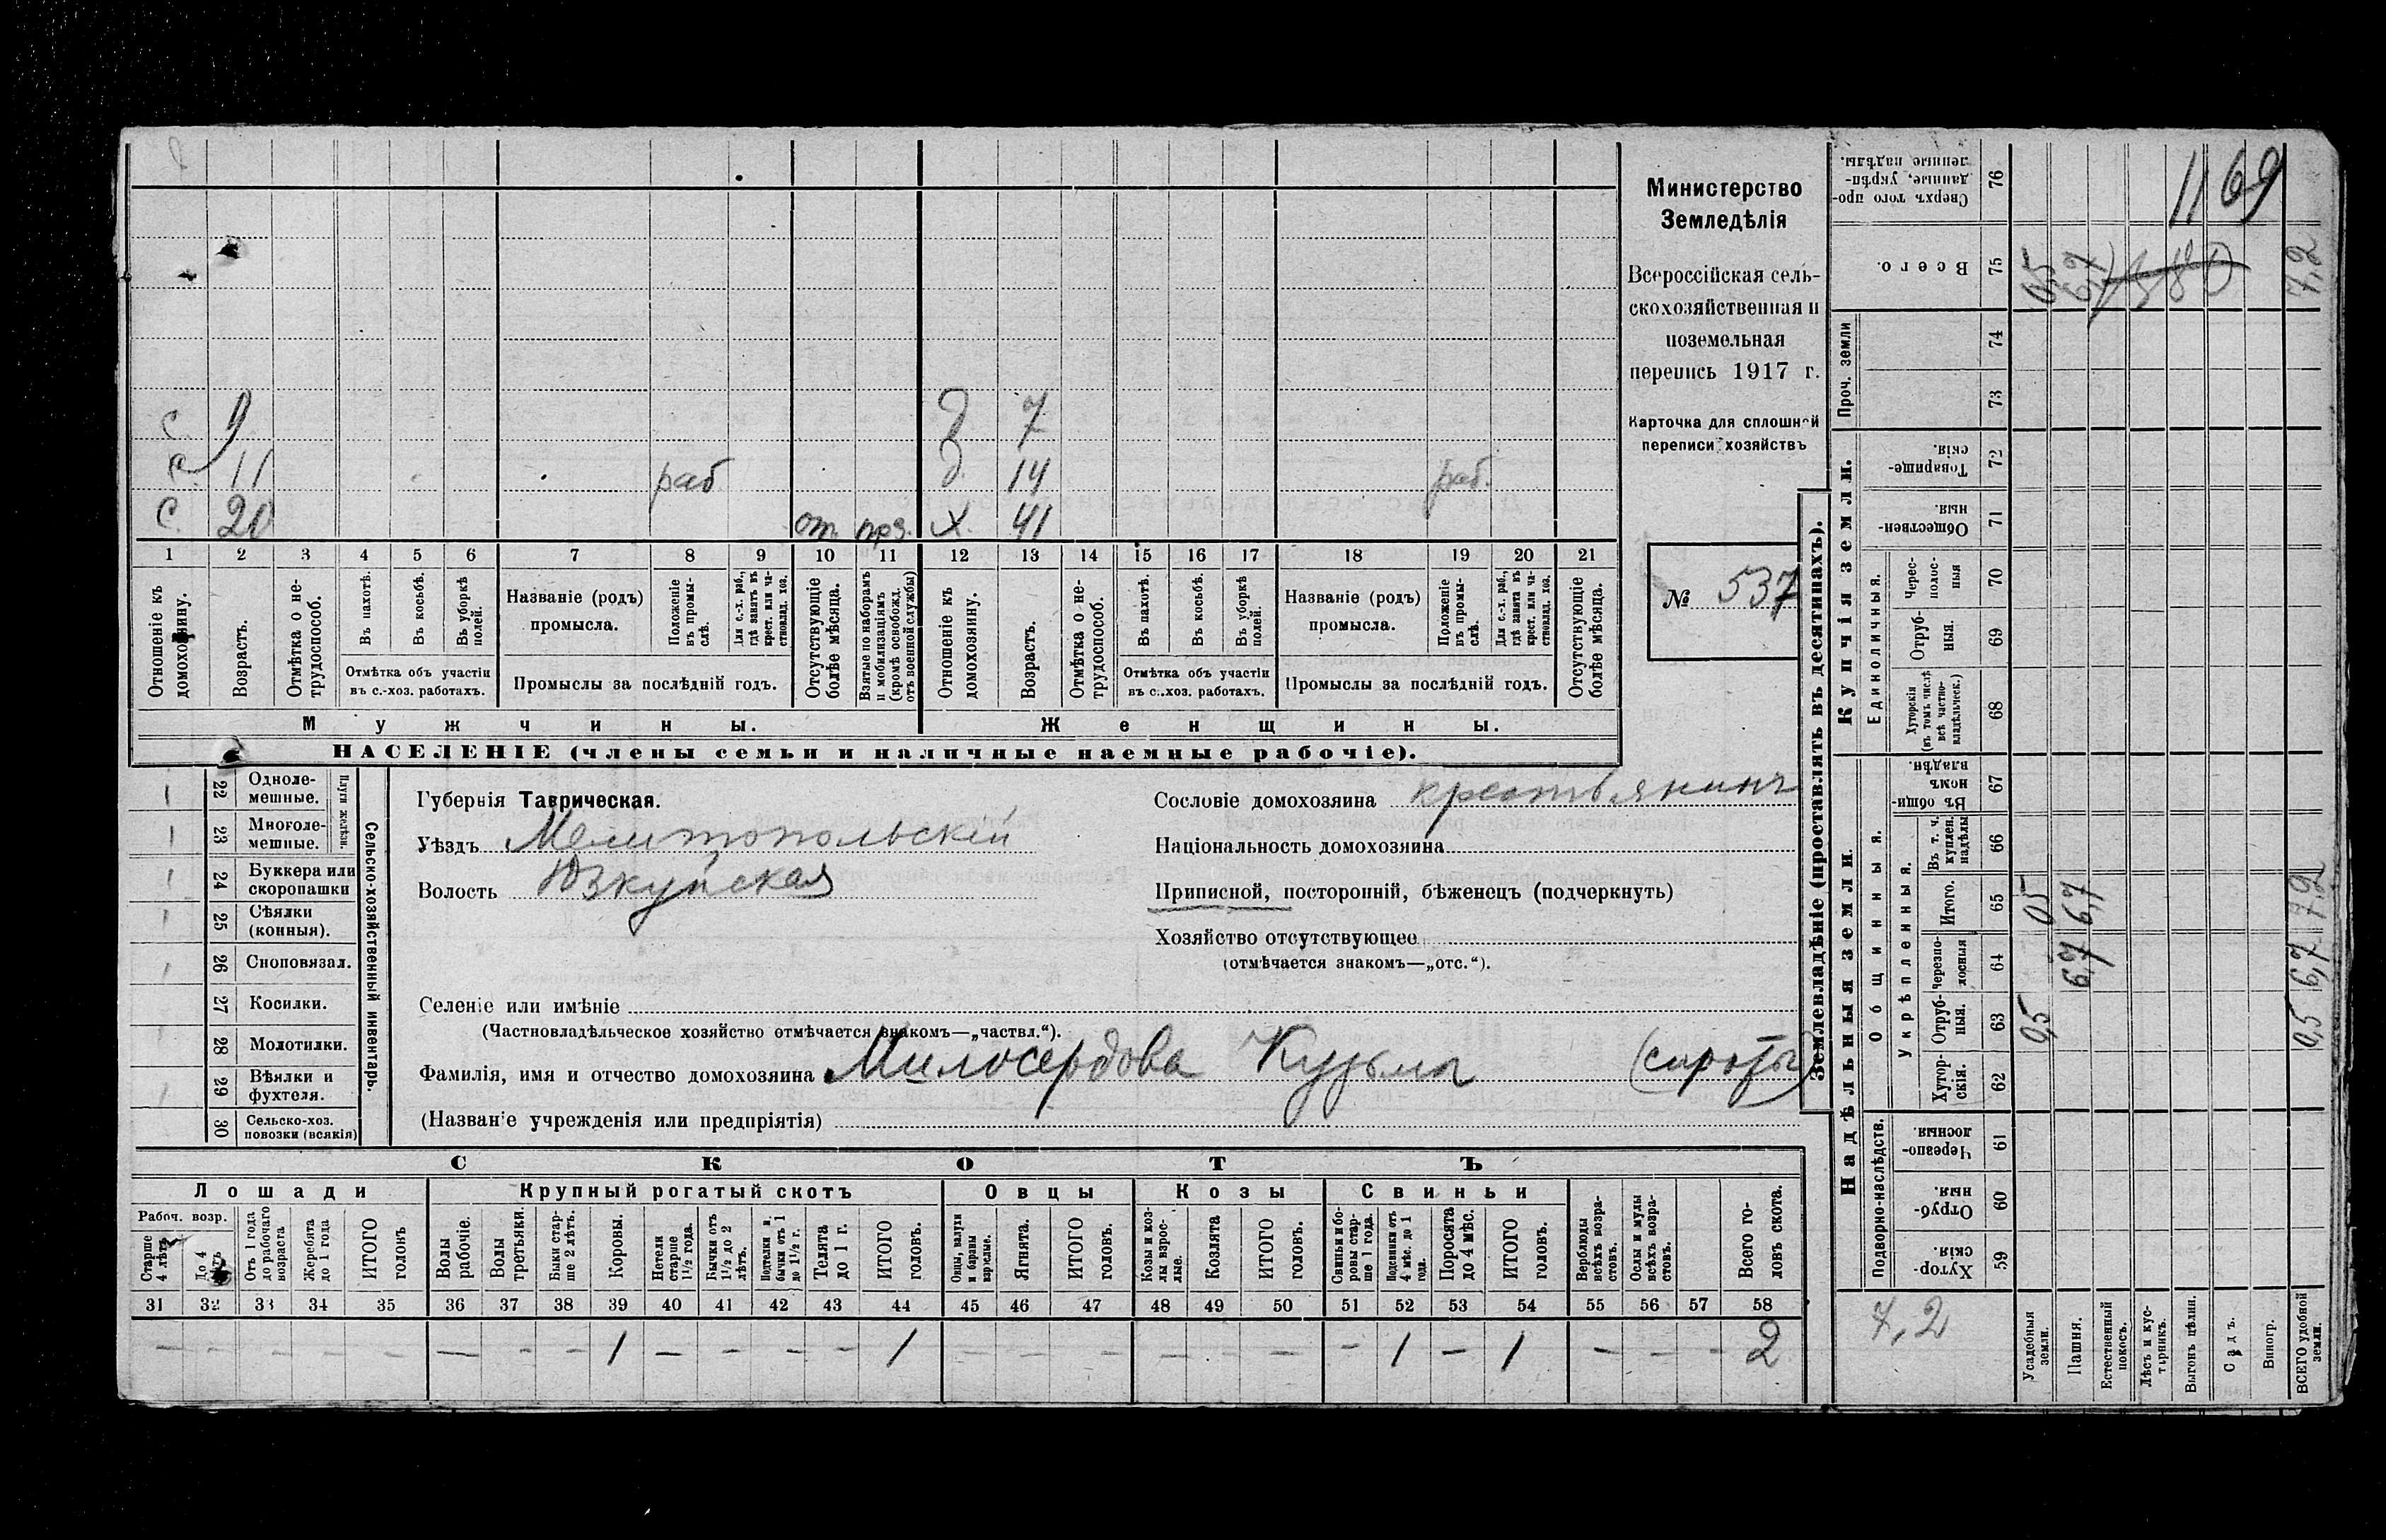 Министерство
Земледѣлія
Всероссійская сель-
скохозяйственная и
поземельная
перепись 1917 г.
Карточка для сплошной
переписи хозяйствъ
№ 537
с 9 д 7
с 11 раб д 14 раб.
с 20 от. прз. х 41
1 2 3 4 5 6 7 8 9 10 11 12 13 14 15 16 17 18 19 20 21
Отношеніе къ домохозяину.
Возрастъ.
Отмѣтка о не-трудоспособ.
Въ пахотѣ.
Въ косьбѣ.
Въ уборкѣ полей.
Отмѣтка объ участіи
въ с.-хоз. работахъ.
Названіе (родъ)
промысла.
Положеніе въ промы-слѣ.
Для с.-х. раб., гдѣ занятъ въ крест. или ча-стновлад. хоз.
Промыслы за послѣдній годъ.
Отсутствующіе болѣе мѣсяца.
Взятые по наборамъ и мобилизаціямъ (кромѣ освобожд. отъ военной службы)
Отношеніе къ домохозяину.
Возрастъ.
Отмѣтка о не-трудоспособ.
Въ пахотѣ.
Въ косьбѣ.
Въ уборкѣ полей.
Отмѣтка объ участіи
въ с.-хоз. работахъ.
Названіе (родъ)
промысла.
Положеніе въ промы-слѣ.
Для с.-х. раб., гдѣ занята въ крест. или ча-стновлад. хоз.
Промыслы за послѣдній годъ.
Отсутствующіе болѣе мѣсяца.
Мужчины. Женщины.
НАСЕЛЕНІЕ (члены семьи и наличные наемные рабочіе).
Сельско-хозяйственный инвентарь.
Плуги желѣзн.
22 Одноле-мешные.
23 Многоле-мешные.
24 Буккера или скоропашки
25 Сѣялки (конныя).
26 Сноповязал.
27 Косилки.
28 Молотилки.
29 Вѣялки и фухтеля.
30 Сельско-хоз. повозки (всякія)
Губернія Таврическая.
Уѣздъ Мелитопольскій
Волость Юзкуйская
Сословіе домохозяина крестьянинъ
Національность домохозяина
Приписной, посторонній, бѣженецъ (подчеркнуть)
Хозяйство отсутствующее
(отмѣчается знакомъ—„отс.“).
Селеніе или имѣніе
(Частновладѣльческое хозяйство отмѣчается знакомъ—„частвл.“).
Фамилія, имя и отчество домохозяина Милосердова Кузьмы (сироты)
(Названіе учрежденія или предпріятія)
СКОТЪ
Лошади Крупный рогатый скотъ Овцы Козы Свиньи
Рабоч. возр.
Старше 4 лѣтъ
До 4 лѣтъ
Отъ 1 года до рабочаго возраста
Жеребята до 1 года
ИТОГО головъ
Волы рабочіе.
Волы третьяки.
Быки стар-ше 2 лѣтъ.
Коровы.
Нетели старше 1½ года.
Бычки отъ 1½ до 2 лѣтъ.
Подтелки и бычки отъ 1 до 1½ г.
Телята до 1 г.
ИТОГО головъ.
Овцы, валухи и бараны взрослые.
Ягнята.
ИТОГО головъ.
Козы и коз-лы взрос-лые.
Козлята
ИТОГО головъ.
Свиньи и бо-ровы стар-ше 1 года.
Подсвинки отъ 4 мѣс. до 1 года.
Поросята до 4 мѣс.
ИТОГО головъ.
Верблюды всѣхъ возра-стовъ.
Ослы и мулы всѣхъ возра-стовъ.
Всего го-ловъ скота.
31 32 33 34 35 36 37 38 39 40 41 42 43 44 45 46 47 48 49 50 51 52 53 54 55 56 57 58
— — — — — — — — 1 — — — — 1 — — — — — — — 1 — 1 — — — 2
Землевладѣніе (проставлять въ десятинахъ).
Надѣльныя земли Купчія земли. Проч. земли
Подворно-наслѣдств. Общинныя. Единоличныя.
Укрѣпленныя.
59 Хутор-скія.
60 Отруб-ныя.
61 Черезпо-лосныя.
62 Хутор-скія.
63 Отруб-ныя.
64 Черезпо-лосныя
65 Итого.
66 Въ т. ч. куплен. надѣлы
67 Въ общин-номъ владѣн.
68 Хуторскія (въ томъ числѣ всѣ частно-владѣльческ.)
69 Отруб-ныя.
70 Черес-полос-ныя
71 Обществен-ныя.
72 Товарище-скія.
73
74
75 Всего.
76 Сверхъ того про-данные, укрѣп-ленные надѣлы.
7,2
Усадебныя земли. 0,5 0,5 0,5
Пашня. 6,7 6,7 6,7
Естественный покосъ.
Лѣсъ и кус-тарникъ.
Выгонъ цѣлин.
Садъ.
Виногр.
ВСЕГО удобной земли. 0,5 6,7 7,2 7,2
1169